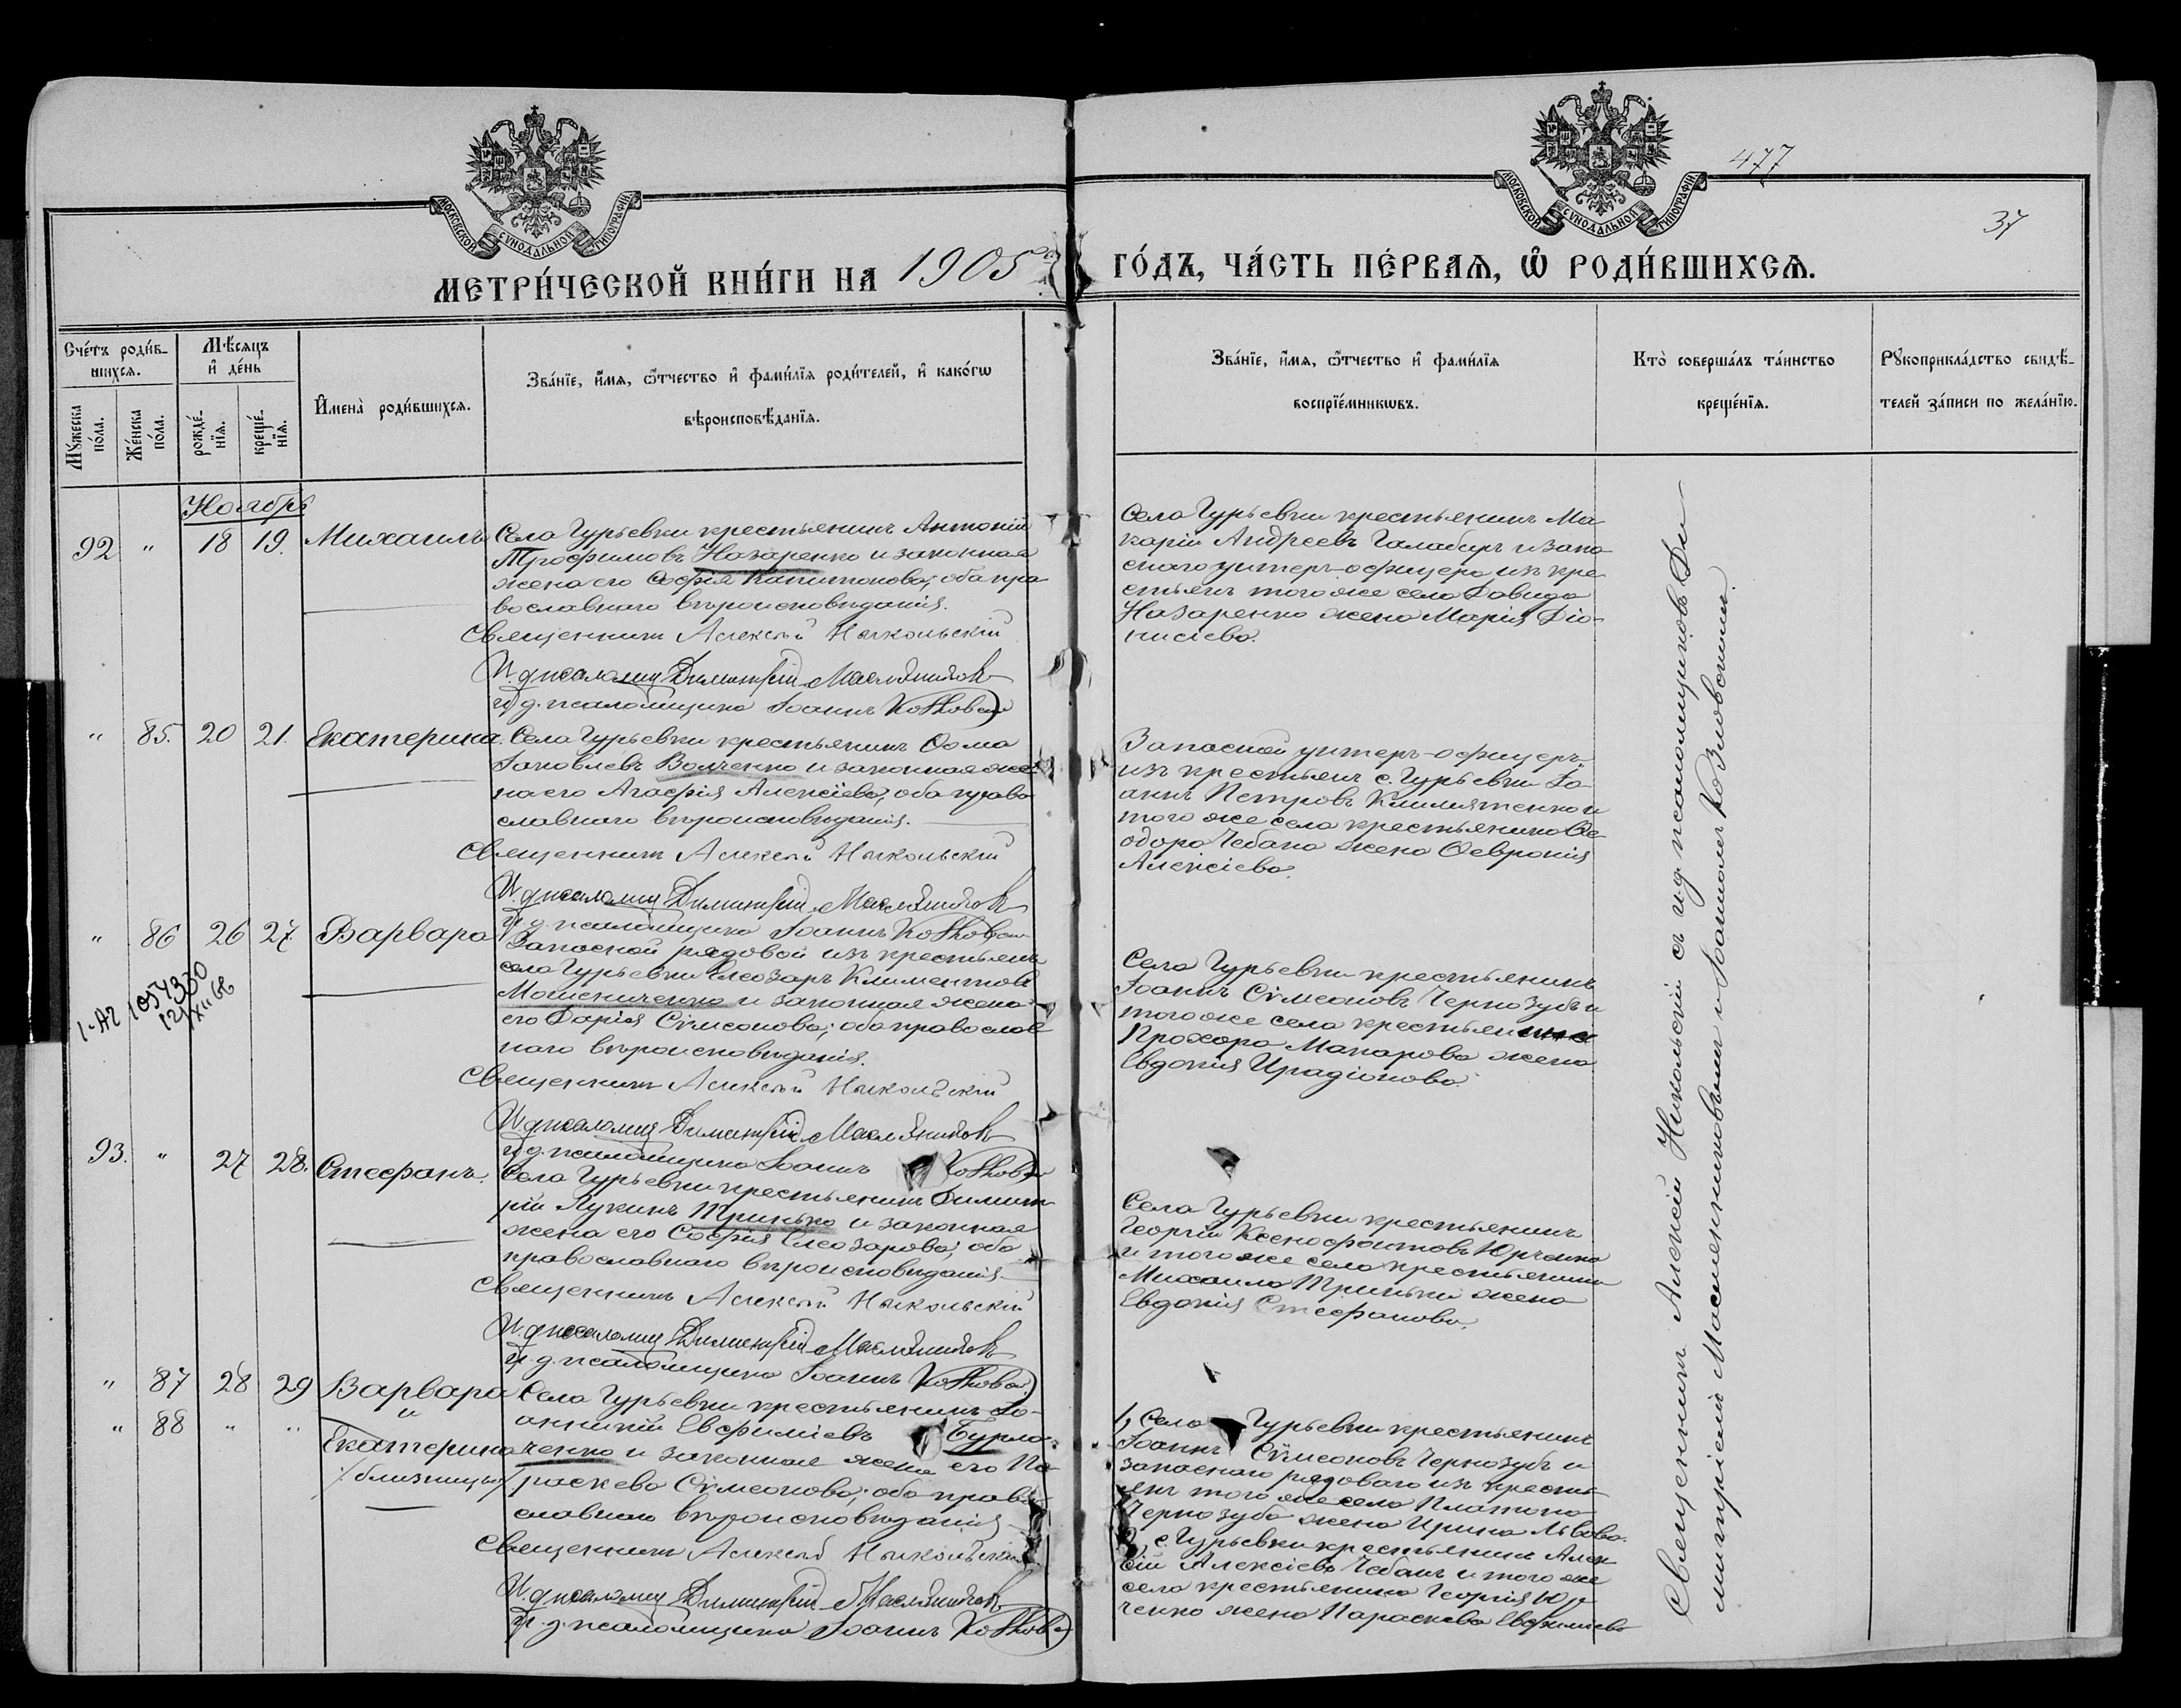 477
37
МОСКОВСКОЙ СУНОДАЛЬНОЙ ТИПОГРАФІИ
МОСКОВСКОЙ СУНОДАЛЬНОЙ ТИПОГРАФІИ
МЕТРИ́ЧЕСКОЙ КНИ́ГИ НА 1905 ГО́ДЪ, ЧА́СТЬ ПЕ́РВАѦ, Ѡ РОДИ́ВШИХСѦ.
Сче́тъ роди́в-
шихсѧ.
Мꙋ́жеска по́ла.
Же́нска по́ла.
Мѣ́сѧцъ и де́нь
рожде́-нїѧ.
креще́-нїѧ.
Имена̀ роди́вшихсѧ.
Зва́нїе, и́мѧ, ѻ́тчество и фами́лїѧ роди́телей, и како́гѡ
вѣроисповѣ́данїѧ.
Зва́нїе, и́мѧ, ѻ́тчество и фами́лїѧ
воспрїе́мникѡвъ.
Кто̀ соверша́лъ та́инство
креще́нїѧ.
Рꙋкоприкла́дство свидѣ́-
телей за́писи по жела́нїю.
Ноябрь
92 " 18 19. Михаилъ
Села Гурьевки крестьянинъ Антоній
Трофимовъ Назаренко и законная
жена его Софія Капитонова; оба пра-
вославнаго вѣроисповѣданія.
Священникъ Алексѣй Никольскій
И. д. псаломщ. Димитрій Масленников
И. д. псаломщика Іоаннъ Козловскій
Села Гурьевки крестьянинъ Ма-
карій Андреевъ Галабиръ и запа-
снаго унтеръ-офицера изъ кре-
стьянъ того же села Давида
Назаренко жена Марія Діо-
нисіева.
" 85. 20 21. Екатерина.
Села Гурьевки крестьянинъ Ѳома
Іаковлевъ Волченко и законная же-
на его Агафія Алексіева; оба право-
славнаго вѣроисповѣданія.
Священникъ Алексѣй Никольскій
И. д. псаломщ. Димитрій Масленников
И. д. псаломщика Іоаннъ Козловскій
Запасной унтеръ-офицеръ
изъ крестьянъ с. Гурьевки Іо-
аннъ Петровъ и
того же села крестьянина Ѳе-
одора Чебана жена Ѳевронія
Алексіева.
" 86 26 27. Варвара
Запасной рядовой изъ крестьянъ
села Гурьевки Елеозаръ Климентовъ
Мошениченко и законная жена
его Дарія Сѵмеонова; оба православ-
наго вѣроисповѣданія.
Священникъ Алексѣй Никольскій
И. д. псаломщ. Димитрій Масленников
И. д. псаломщика Іоаннъ Козловскій
Села Гурьевки крестьянинъ
Іоаннъ Сѵмеоновъ Чернозубъ и
того же села крестьянина
Прохора Макарова жена
Евдокія Ирадіонова.
93. " 27 28. Стефанъ.
Села Гурьевки крестьянинъ Димит-
рій Лукинъ Тринько и законная
жена его Софія Елеозарова; оба
православнаго вѣроисповѣданія.
Священникъ Алексѣй Никольскій
И. д. псаломщ. Димитрій Масленников
И. д. псаломщика Іоаннъ Козловскій
Села Гурьевки крестьянинъ
Георгій Ксенофонтовъ Юрченко
и того же села крестьянина
Михаила Тринька жена
Евдокія Стефанова.
" 87 28 29 Варвара
и
" 88 " " Екатерина
/близнецы/
Села Гурьевки крестьянинъ Іо-
анникій Евфиміевъ Бурла-
ченко и законная жена его Па-
раскева Сѵмеонова; оба право-
славнаго вѣроисповѣданія
Священникъ Алексѣй Никольскій
И. д. псаломщ. Димитрій Масленников
И. д. псаломщика Іоаннъ Козловскій
1, Села Гурьевки крестьянинъ
Іоаннъ Сѵмеоновъ Чернозубъ и
запаснаго рядоваго изъ кресть-
янъ того же села Платона
Чернозуба жена Ирина Львова.
2, с. Гурьевки крестьянинъ Алек-
сій Алексіевъ Чебанъ и того же
села крестьянина Георгія Юр-
ченко жена Параскева Евфиміева
Священникъ Алексій Никольскій съ и. д. псаломщиковъ Ди-
митріемъ Масленниковымъ и Іоанномъ Козловскимъ.